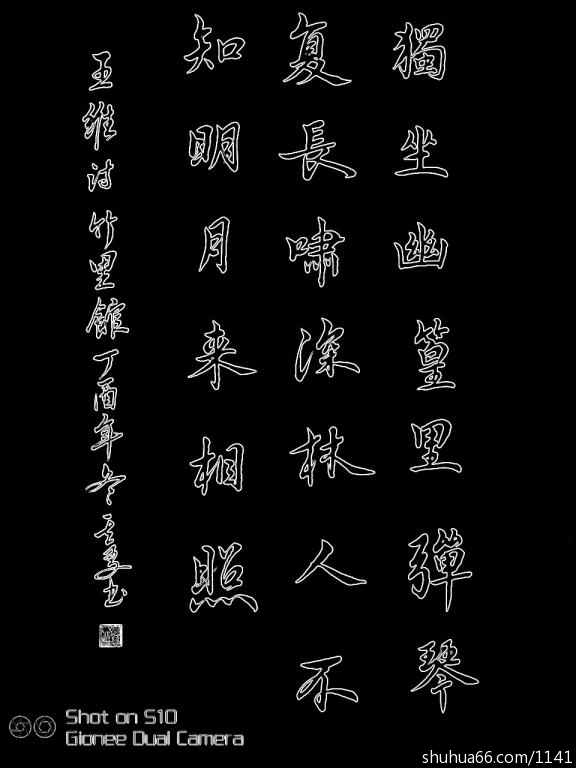 獨坐幽篁里彈琴
复長啸深林人不
知明月来相照
王維诗竹里館丁酉年冬
Shot on S10
Gionee Dual Camera
shuhua66.com/1141